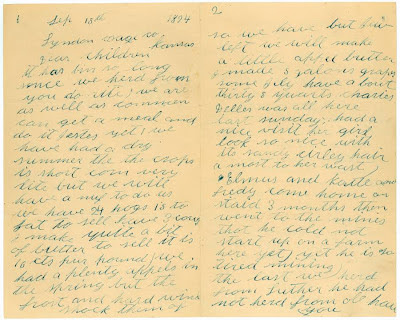 1 Sep 18th 1894
Lyndon osage co,
Kansas
Dear Children
it has bin so long
since we herd from
you do rite; we are
as well as common
can get a meal and
do it justes yet; we
have had a dry
summer the the crops
is short corn very
lite but we will
have a nuf to do us
we have 24 hogs is to
fat to sell have 3 cows
I make quite a bit
of butter to sell it is
15 cts pur pound; we
had a plenty appels in
the spring but the
frost and hard wind
nock them of
2
so we have but few
left we will make
a little appel butter
I made 3 galons grapes
some jely have a bout
thirty 8 quarts Charles
Dellos was all here
last sunday; had a
nice visit her girl
look so nice with
its sandy curley hair
a most to her wast
Elmus and Katte and
fredy come home an
staid 3 months then
went to the mines
that he cold not
start up on a farm
here yet; yet he is so
tired mining
the last we herd
from Luther he had
not herd from old have
you